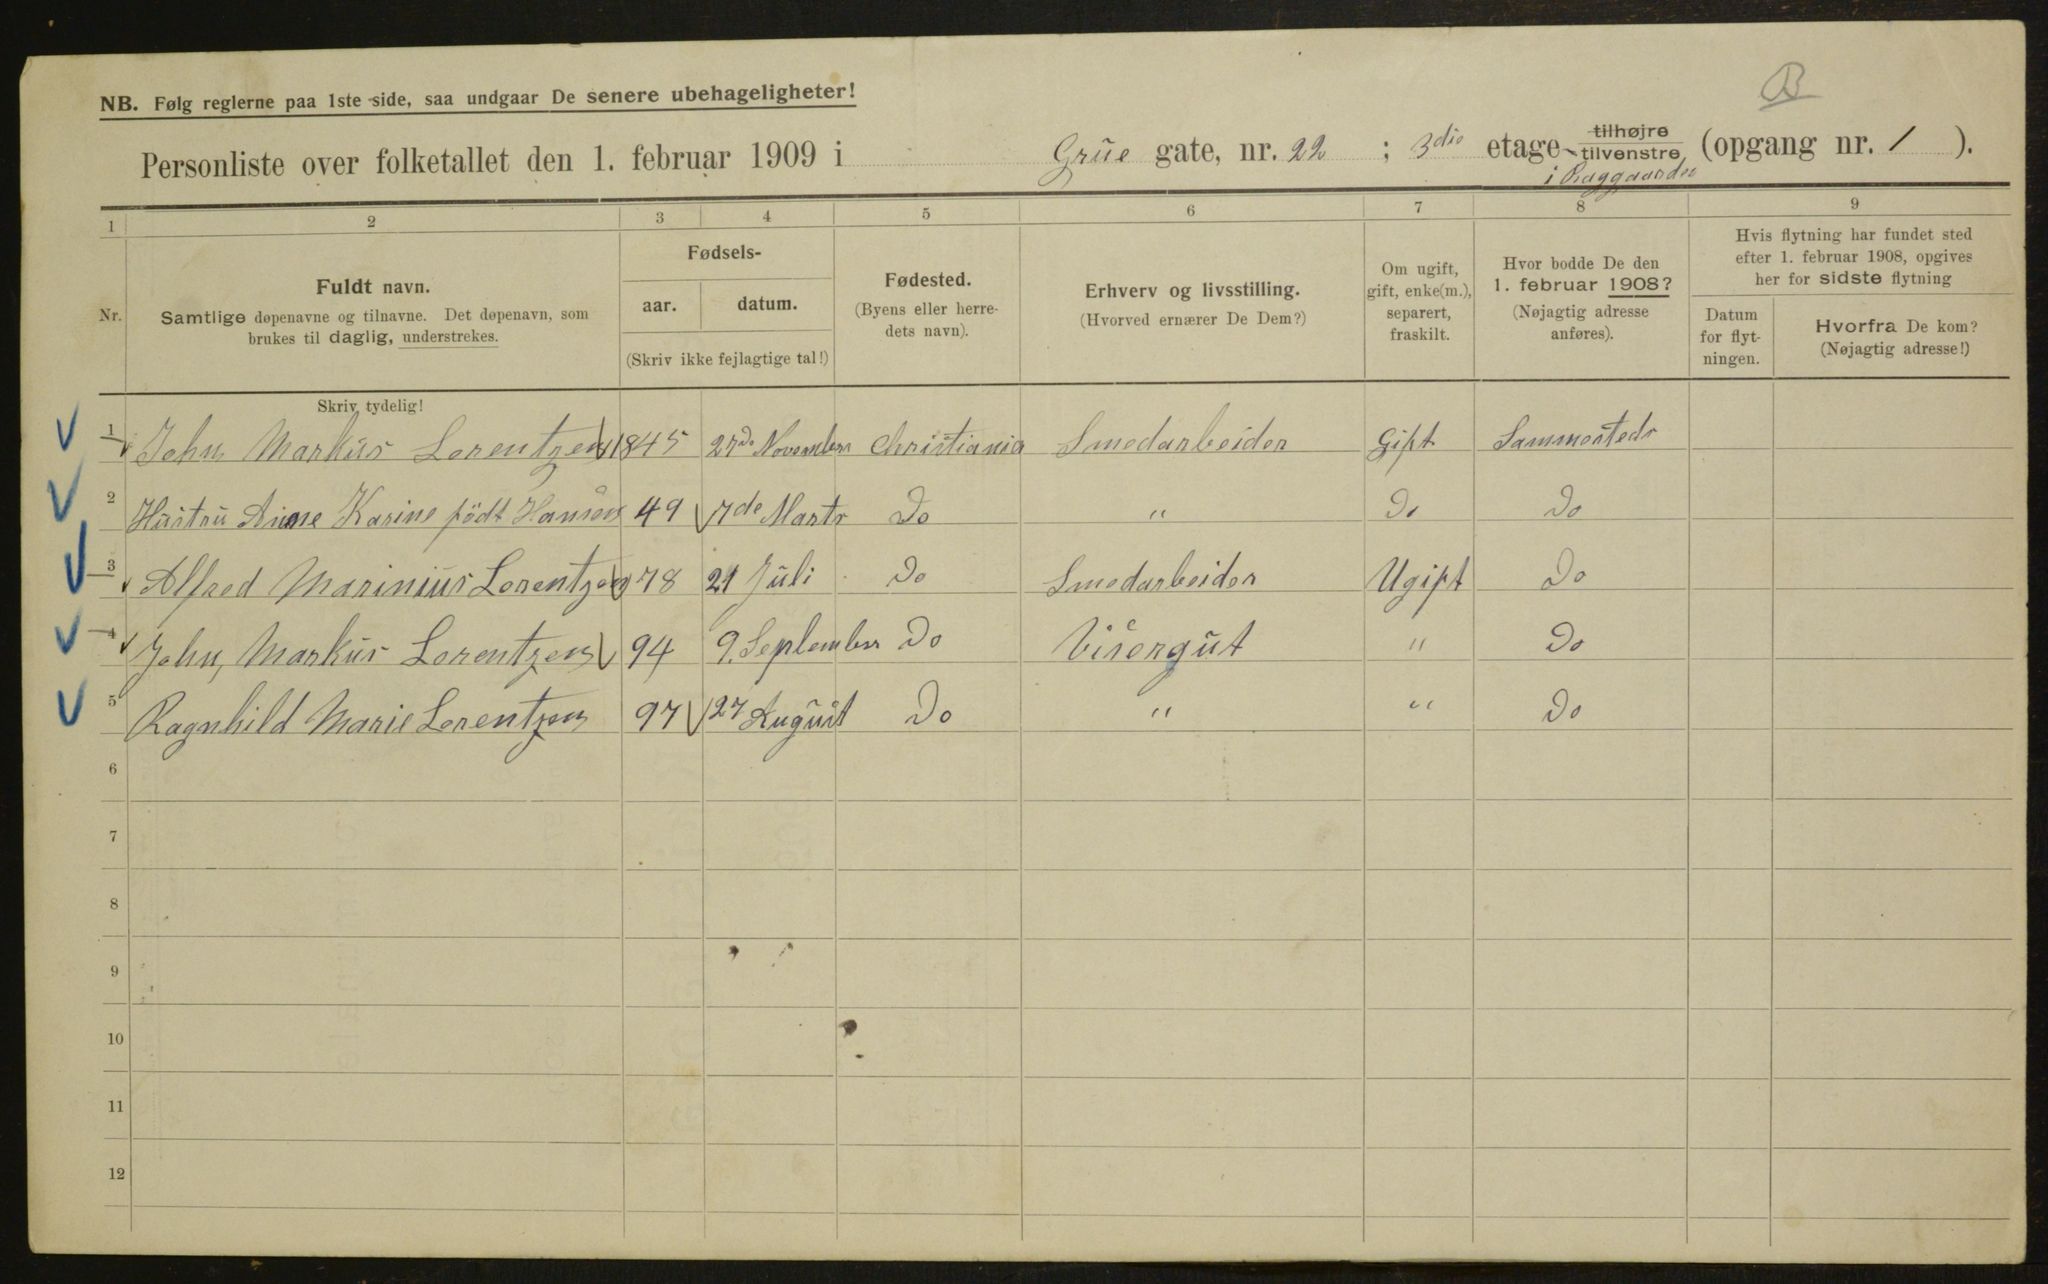 B
NB. Følg reglerne paa 1ste side, saa undgaar De senere ubehageligheter!
Personliste over folketallet den 1. februar 1909 i Grüe gate, nr. 22 ; 3die etage tilhøjre tilvenstre (opgang nr. 1 ).
i Baggaarden
1 2 3 4 5 6 7 8 9
Nr.
Fuldt navn.
Samtlige døpenavne og tilnavne. Det døpenavn, som
brukes til daglig, understrekes.
Fødsels-
aar. datum.
(Skriv ikke fejlagtige tal!)
Fødested.
(Byens eller herre-
dets navn).
Erhverv og livsstilling.
(Hvorved ernærer De Dem?)
Om ugift,
gift, enke(m.),
separert,
fraskilt.
Hvor bodde De den
1. februar 1908?
(Nøjagtig adresse
anføres).
Hvis flytning har fundet sted
efter 1. februar 1908, opgives
her for sidste flytning
Datum
for flyt-
ningen.
Hvorfra De kom?
(Nøjagtig adresse!)
Skriv tydelig!
1 John Marküs Lorentzen 1845 27de November Christiania Smedarbeider Gift Sammesteds
2 Hüstrü Anne Karine født Hansen 49 7de Marts Do " Do Do
3 Alfred Mariniüs Lorentzen 78 21 Jüli Do Smedarbeider Ugift Do
4 John, Marküs Lorentzen 94 9. September Do Visergüt " Do
5 Ragnhild Marie Lorentzen 97 27 Augüst Do " " Do
6
7
8
9
10
11
12